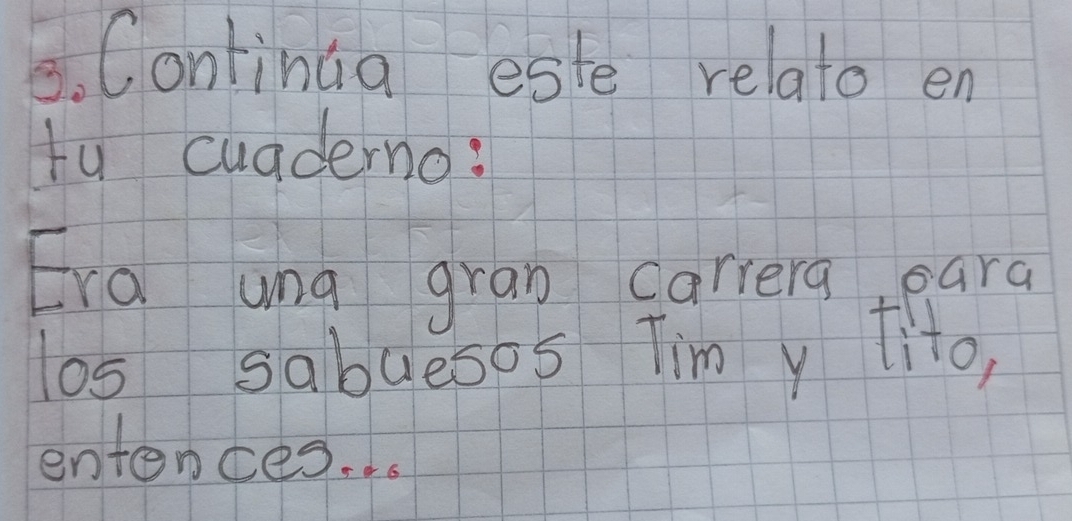 3. Continúa este relato en
tu cuaderno:
Era una gran carrera para
los sabuesos Tim y tito,
entonces...